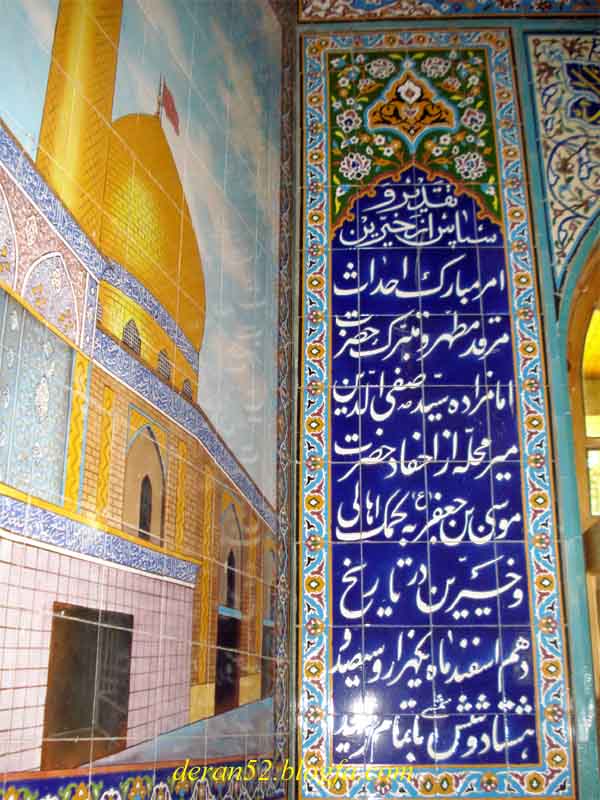 تقدیر و
سپاس از خیرین
امر مبارک احداث
مرقد مطهر و متبرک حضرت
امامزاده سید صفی الدین
میر محله از احفاد حضرت
موسی بن جعفر ع به کمک اهالی
و خیرین در تاریخ
دهم اسفند ماه یکهزار و سیصد و
هشتاد و شش شمسی باتمام رسید
deran52.blogfa.com